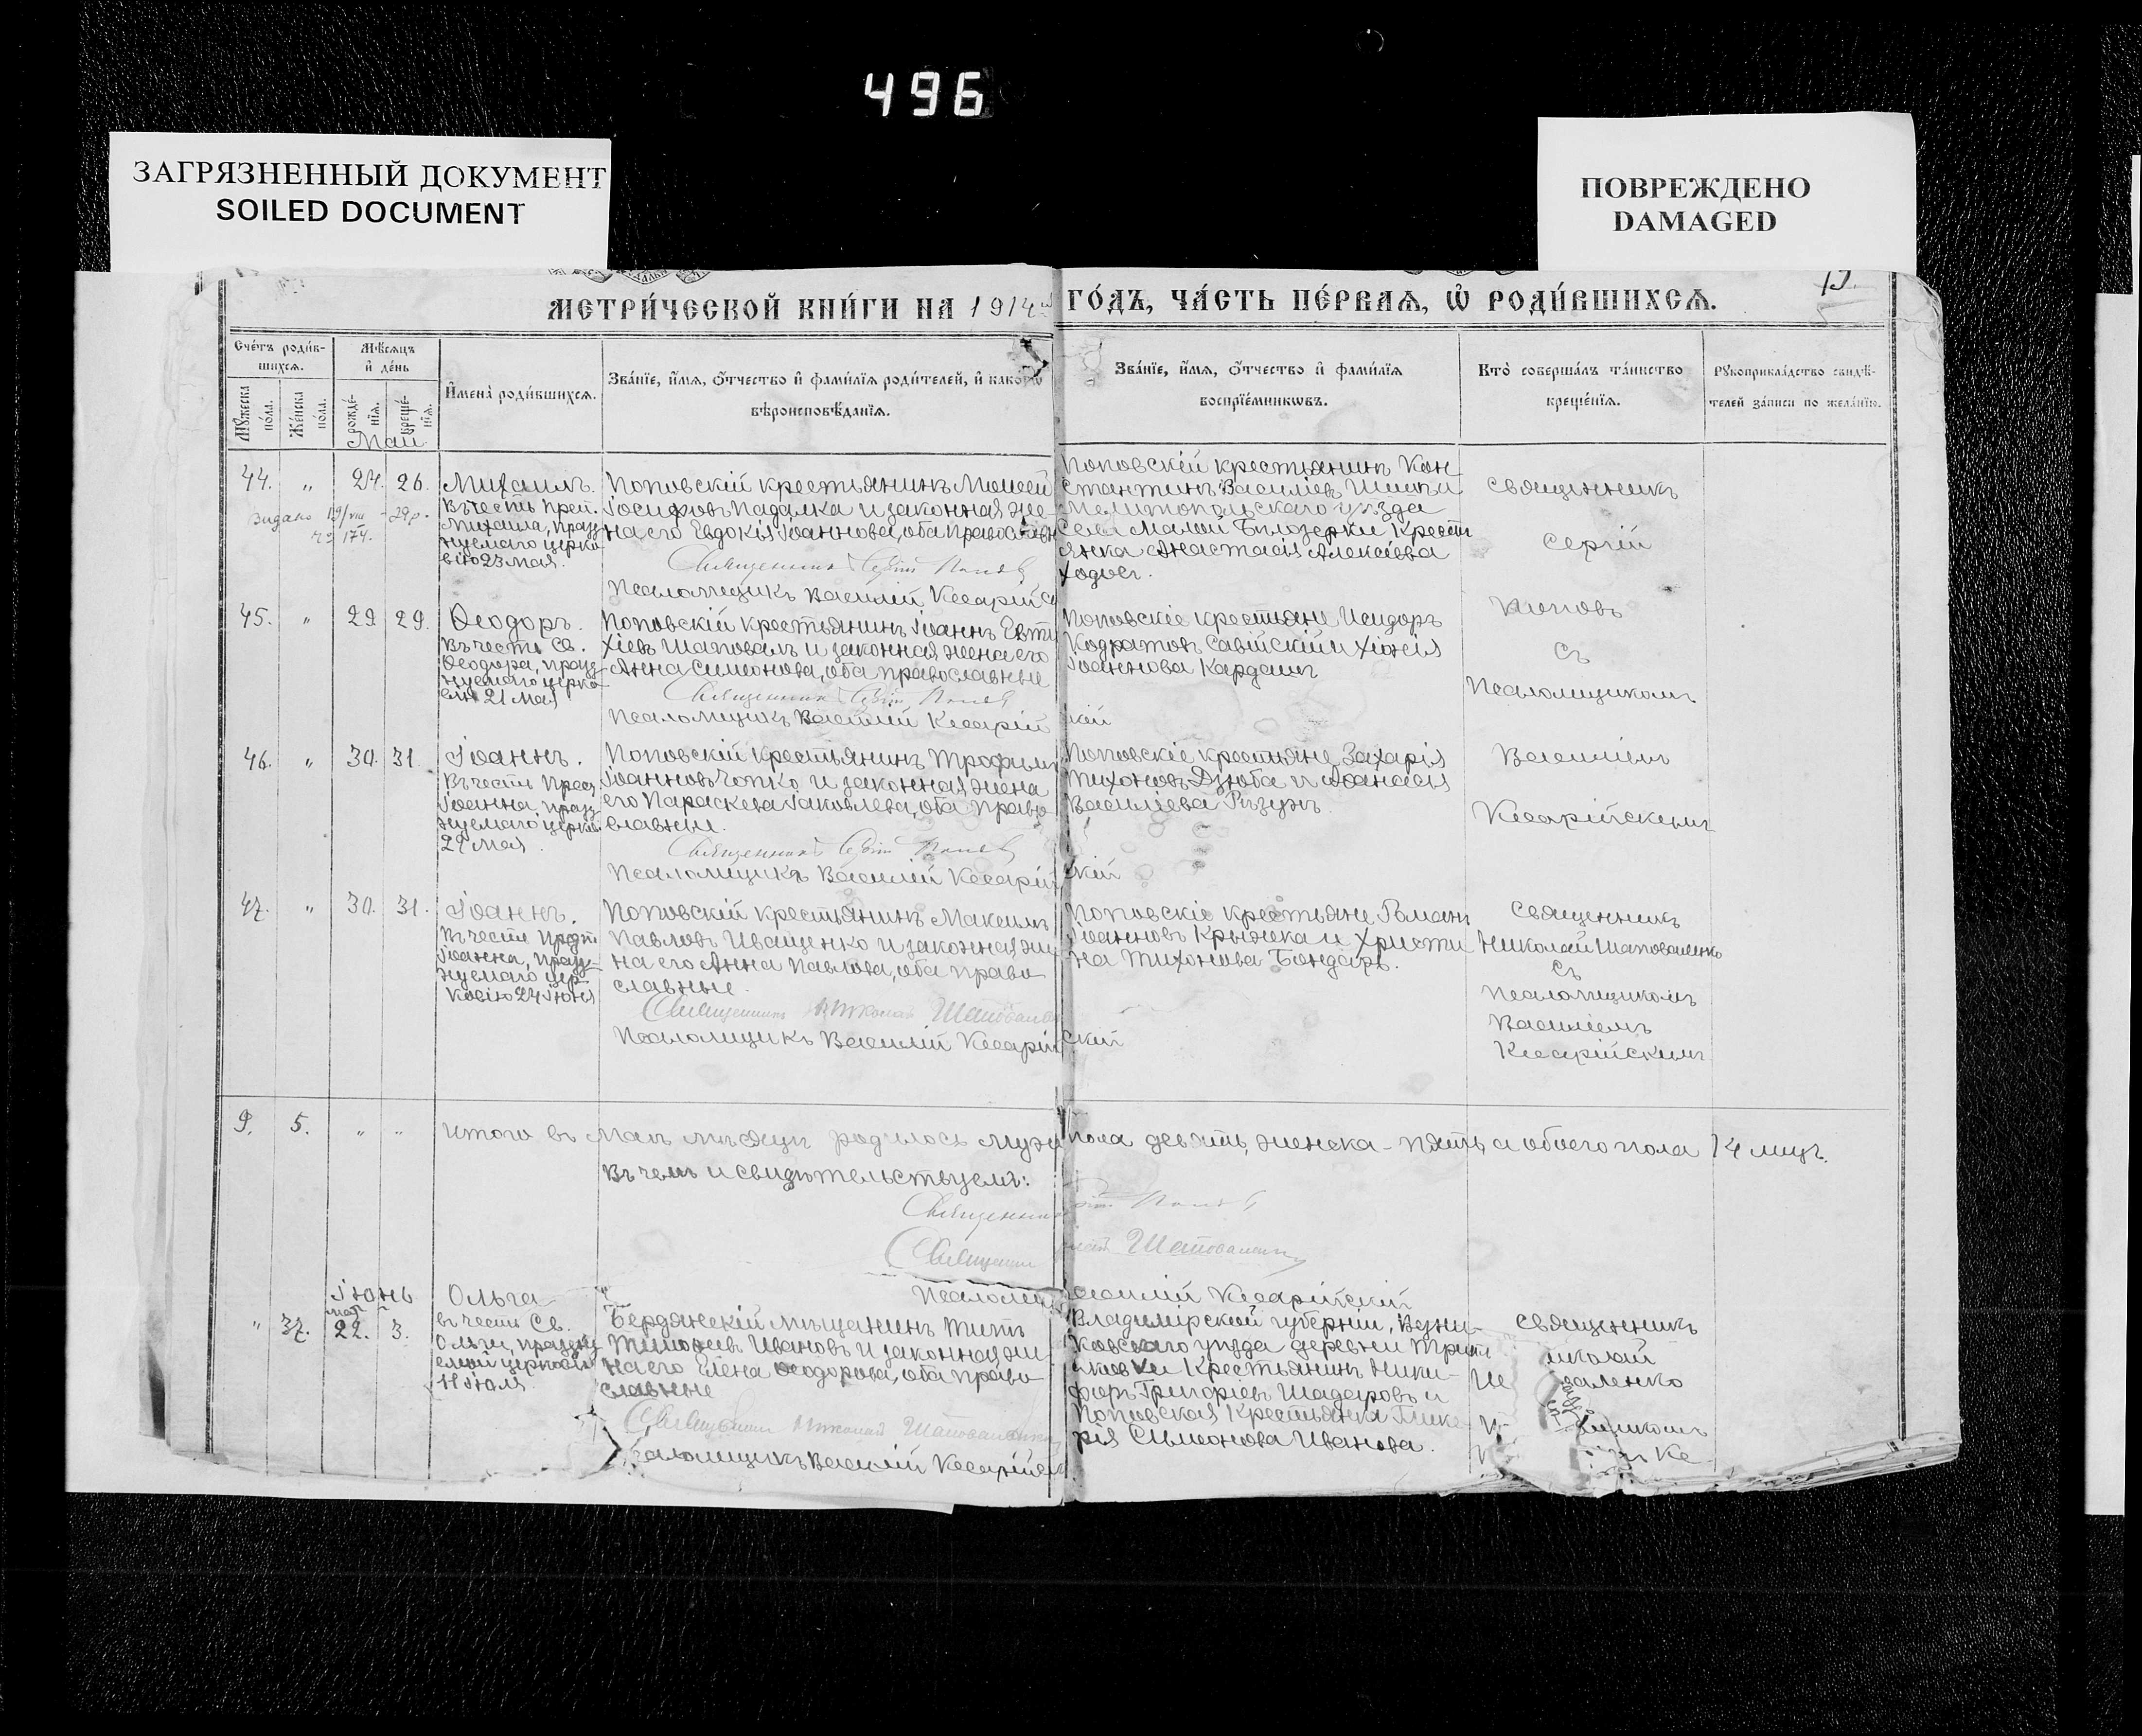 496
ЗАГРЯЗНЕННЫЙ ДОКУМЕНТ
SOILED DOCUMENT
ПОВРЕЖДЕНО
DAMAGED
МЕТРИ́ЧЕСКОЙ КНИ́ГИ НА 1914 ГО́ДЪ, ЧА́СТЬ ПЕ́РВАѦ, Ѿ РОДИ́ВШИХСѦ.
Сче́тъ роди́в-
шихсѧ.
Мꙋ́жеска по́ла.
Же́нска по́ла.
Мѣ́сѧцъ
и҆ де́нь
рожде́-нїѧ.
креще́-нїѧ.
И҆мена̀ роди́вшихсѧ.
Зва́нїе, и҆́мѧ, ѻ҆́тчество и҆ фами́лїѧ роди́телей, и҆ како́гѡ
вѣроисповѣ́данїѧ.
Зва́нїе, и҆́мѧ, ѻ҆́тчество и҆ фами́лїѧ
воспрїе́мникѡвъ.
Кто̀ соверша́лъ та́инство
креще́нїѧ.
Рꙋкоприкла́дство свидѣ́-
телей за́писи по жела́нїю.
Май
44. " 24. 26. Михаилъ.
Въ честь преп.
Михаила, празд
нуемаго церко
вію 23 мая.
Видано 19/VIII - 29 р.
№ 174.
Поповскій крестьянинъ Моисей
Іосифовъ Падалка и законная же-
на его Евдокія Іоаннова, оба православн
Священникъ Сергій Поповъ
Псаломщикъ Василій Кесарійс
Поповскій крестьянинъ Кон-
стантинъ Василіевъ
Мелитопольскаго уѣзда
села Малой Бѣлозерки крестъ
янка Анастасія Алексіева
Священникъ
Сергій
Поповъ
съ
Псаломщикомъ
Василіемъ
Кесарійскимъ
45. " 29 29. Ѳеодоръ.
Въ честь Св.
Ѳеодора, празд-
нуемаго церко-
21 мая
Поповскій крестьянинъ Іоаннъ Евти
хіевъ Шаповалъ и законная жена его
Анна Симонова, оба православные
Священникъ Сергій Поповъ
Псаломщикъ Василій Кесарійскій
Поповскіе крестьяне Исидоръ
Кодратовъ Савійскій и Хіонія
Іоаннова Кардашъ
46. " 30. 31. Іоаннъ.
Въ честь Прав.
Іоанна празд
нуемаго церко.
29 мая.
Поповскій крестьянинъ Трофимъ
Іоанновъ Чопко и законная жена
его Параскева Іаковлева, оба право
славные.
Священникъ Сергій Поповъ
Псаломщикъ Василій Кесарійскій
Поповскіе крестьяне Захарія
Тихоновъ Дзюба и Аѳанасія
Василіева
47. " 30. 31. Іоаннъ.
Въ честь Прдт
Іоанна, празд-
нуемаго цер-
ковію 24 Іюня
Поповскій крестьянинъ Максимъ
Павловъ Иващенко и законная же
на его Анна Павлова, оба право-
славные.
Священникъ Николай Шаповален
Псаломщикъ Василій Кесарійскій
Поповскіе крестьяне Романъ
Іоанновъ Крыжка и Христи
на Тихонова Бондарь.
Священникъ
Николай Шаповаленко
съ
Псаломщикомъ
Василіемъ
Кесарійскимъ
9. 5. " " Итого въ Маѣ мѣсяцѣ родилось муж пола девять, женска - пять, а обоего пола 14 лицъ.
Въ чемъ и свидѣтельствуемъ:
Священник Поповъ
Священни Шаповаленко
Псалом асилій Кесарійскій
Іюнь
май
" 37. 22. 3. Ольга
въ честь Св.
Ольги, праздну
емой церковію
11 Іюля.
Бердянскій мѣщанинъ Титъ
Тимоѳеевъ Ивановъ и законная же
на его Елена Ѳеодорова, оба право-
славные
Священникъ Николай Шаповаленко
саломщикъ Василій Кесарійск
Владимірской губерніи, Вязни-
ковскаго уѣзда деревни
Крестьянинъ Ники-
форъ Григоріевъ Шадаровъ и
Поповская крестьянка Глике
рія Симонова Иванова.
Священникъ
иколай
валенко
щикомъ
Ке